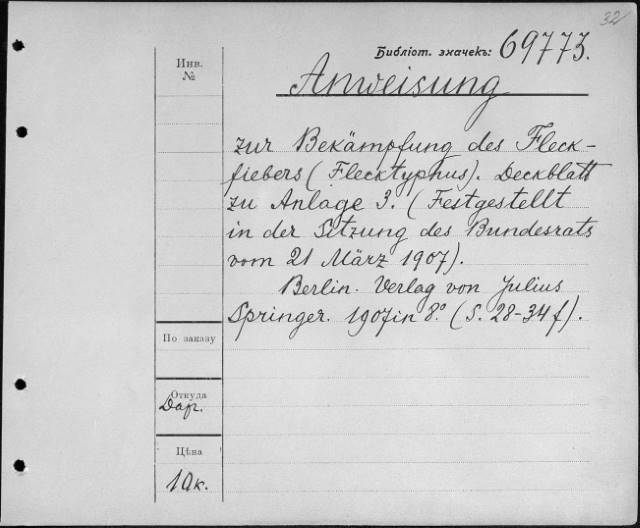 32
Библіот. значекъ: 69773.
Инв.
№
Anweisung
zur Bekämpfung des Fleck-
fiebers (Flecktyphus). Deckblatt
zu Anlage 3. (Festgestellt
in der Sitzung des Bundesrats
vom 21 März 1907).
Berlin. Verlag von Julius
Springer. 1907 in 8.° (S. 28-34 f).
По заказу
Откуда
Дар.
Цѣна
10к.